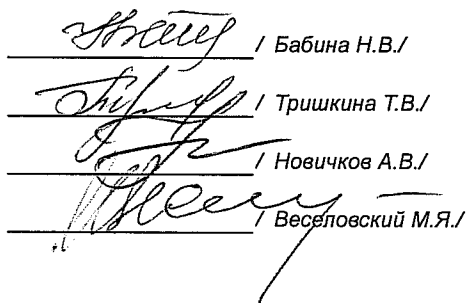 / Бабина Н.В./
/ Тришкина Т.В./
/ Новичков А.В./
/ Веселовский М.Я./